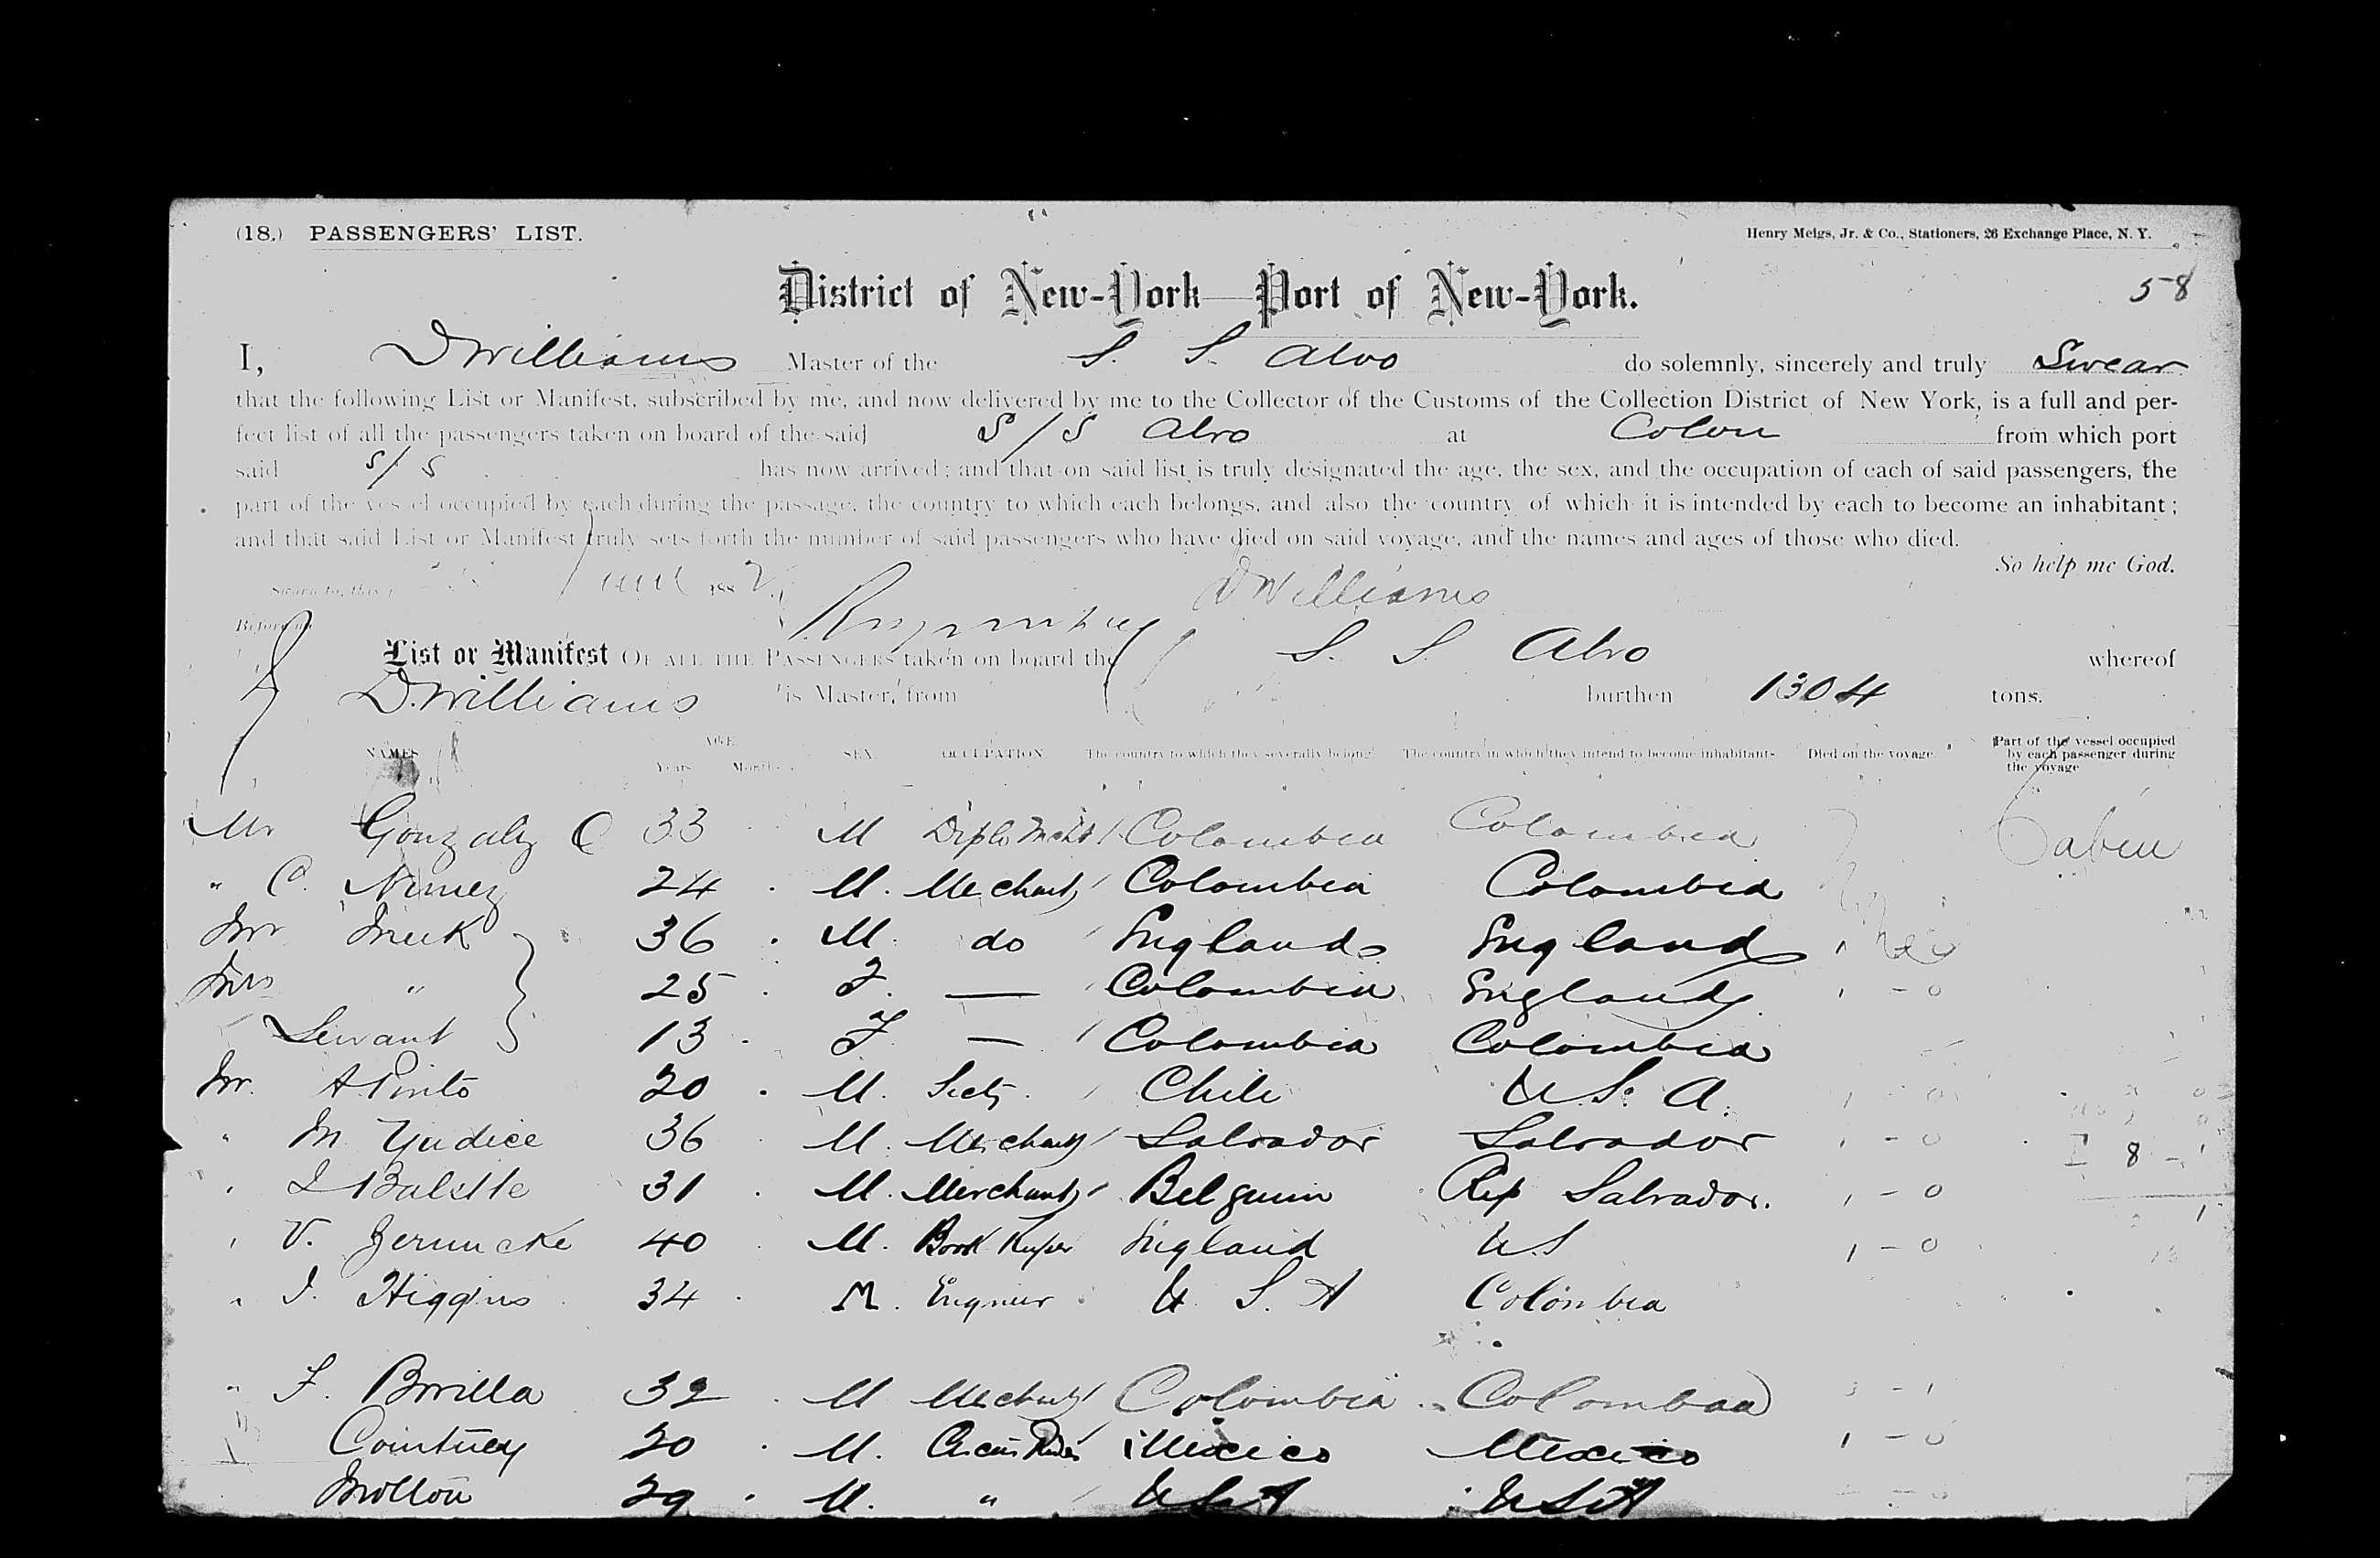 (18.) PASSENGERS' LIST.
Henry Meigs, Jr. & Co., Stationers, 26 Exchange Place, N. Y.
District of New-York—Port of New-York.
58
I, D Williams Master of the S. S. Alvo do solemnly, sincerely and truly Swear
that the following List or Manifest, subscribed by me, and now delivered by me to the Collector of the Customs of the Collection District of New York, is a full and per-
fect list of all the passengers taken on board of the said S/S Alvo at Colon from which port
said S/S has now arrived; and that on said list is truly designated the age, the sex, and the occupation of each of said passengers, the
part of the vessel occupied by each during the passage, the country to which each belongs, and also the country of which it is intended by each to become an inhabitant;
and that said List or Manifest truly sets forth the number of said passengers who have died on said voyage, and the names and ages of those who died.
So help me God.
Sworn to, this 1882
D Williams
Before me
List or Manifest OF ALL THE PASSENGERS taken on board the S. S. Alvo whereof
D. Williams is Master, from burthen 1304 tons.
NAMES AGE Years Months SEX OCCUPATION The country to which they severally belong The country in which they intend to become inhabitants Died on the voyage Part of the vessel occupied by each passenger during the voyage
Mr C 33 M Colombia Colombia Cabin
" C. Nunez 24 M. Mechant Colombia Colombia
Mr Meek 36 M. do England England
Mrs " 25 F. — Colombia England
Servant 13 F — Colombia Colombia
Mr. A Pinto 20 M. Secty. Chile U. S. A.
" M Yudice 36 M. Merchant Salvador Salvador
" 31 M. Merchant Belguim Rep Salvador. 1 - 0
" V. 40 M. Book Keeper England U.S 1 - 0
" J. Higgins 34 M. Engineer U. S. A Colombia
" F. 32 M Mechant Colombia
Courtney 20 M. Circus Rider Mexico Mexico 1 - 0
29 M. " USA USA